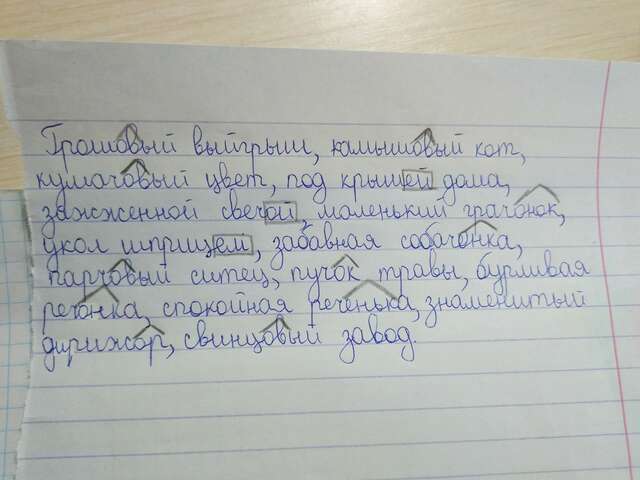 Грошовый выигрыш, камышовый кот,
кумачовый цвет, под крышей дома,
зажженной свечой, маленький грачонок,
укол шприцем, забавная собачонка,
парчовый ситец, пучок травы, бурливая
речонка, спокойная реченька, знаменитый
дирижор, свинцовый завод.